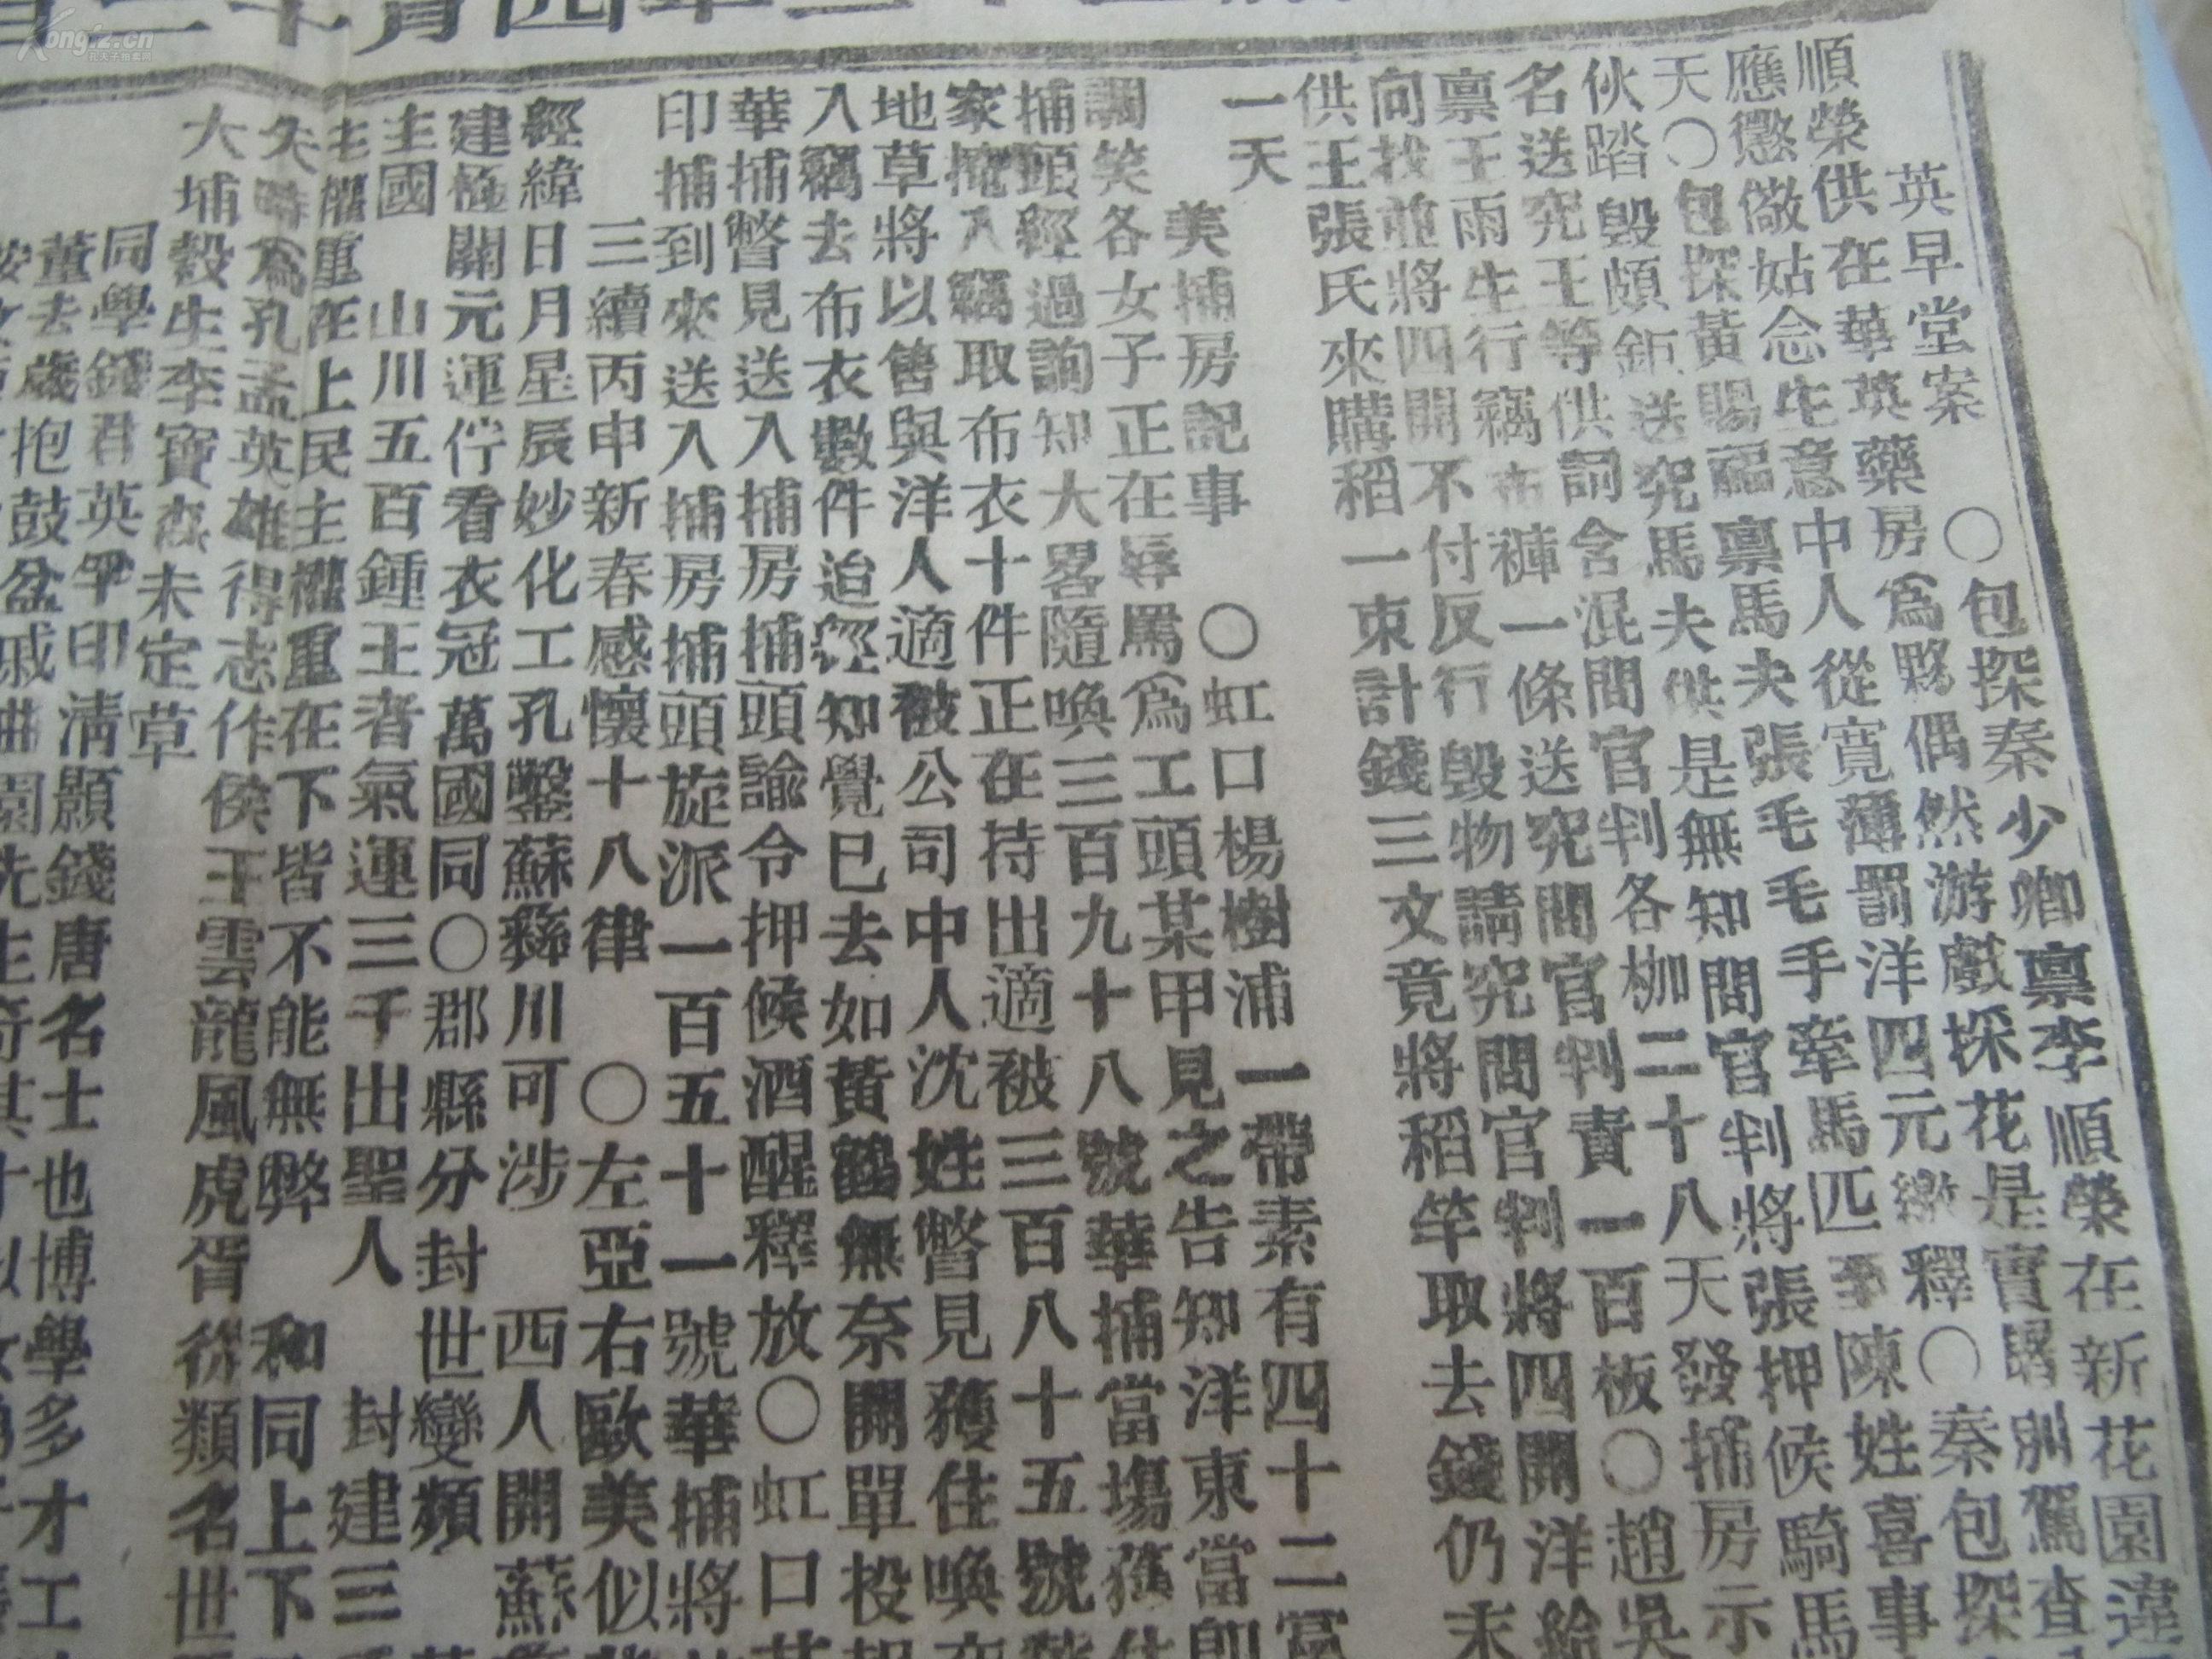 英早堂案　○包探秦少卿禀李順榮在新花園違
順榮供在華英藥房為夥偶然游戲採花是實
應懲儆姑念生意中人從寬薄罰洋四元繳釋○秦包探
天○包探黃賜福禀馬夫張毛毛手牽馬匹
陳姓喜事
伙踏毀頗鉅送究馬夫供是無知問官判將張押候騎馬
名送究王等供詞含混問官判各枷二十八天發捕房示
禀王雨生行竊布褲一條送究問官判責一百板○趙吳
向找並將四開不付反行毀物請究問官判將四開洋給
供王張氏來購稻一束計錢三文竟將稻竿取去錢仍未
一天
美捕房記事　○虹口楊樹浦一帶素有四十二
調笑各女子正在辱罵為工頭某甲見之告知洋東當即
捕頭經過詢知大畧隨喚三百九十八號華捕當場獲住
家掩入竊取布衣十件正在持出適被三百八十五號
地草將以售與洋人適被公司中人沈姓瞥見獲住喚
入竊去布衣數件迨經知覺已去如黃鶴無奈開單投報
華捕瞥見送入捕房捕頭諭令押候酒醒釋放○虹口
印捕到來送入捕房捕頭旋派一百五十一號華捕將
三續丙申新春感懷十八律　○左亞右歐美似
經緯日月星辰妙化工孔鑿蘇彝川可涉　西人開蘇
建極開元運佇看衣冠萬國同○郡縣分封世變頻
主國　山川五百鍾王者氣運三千出聖人　封建三
主權重在上民主權重在下皆不能無弊　和同上下
失時為孔孟英雄得志作侯王雲龍風虎胥從類名世
大埔穀生李寶森未定草
同學錢君英甲印清顯錢唐名士也博學多才工
董去歲抱鼓盆戚